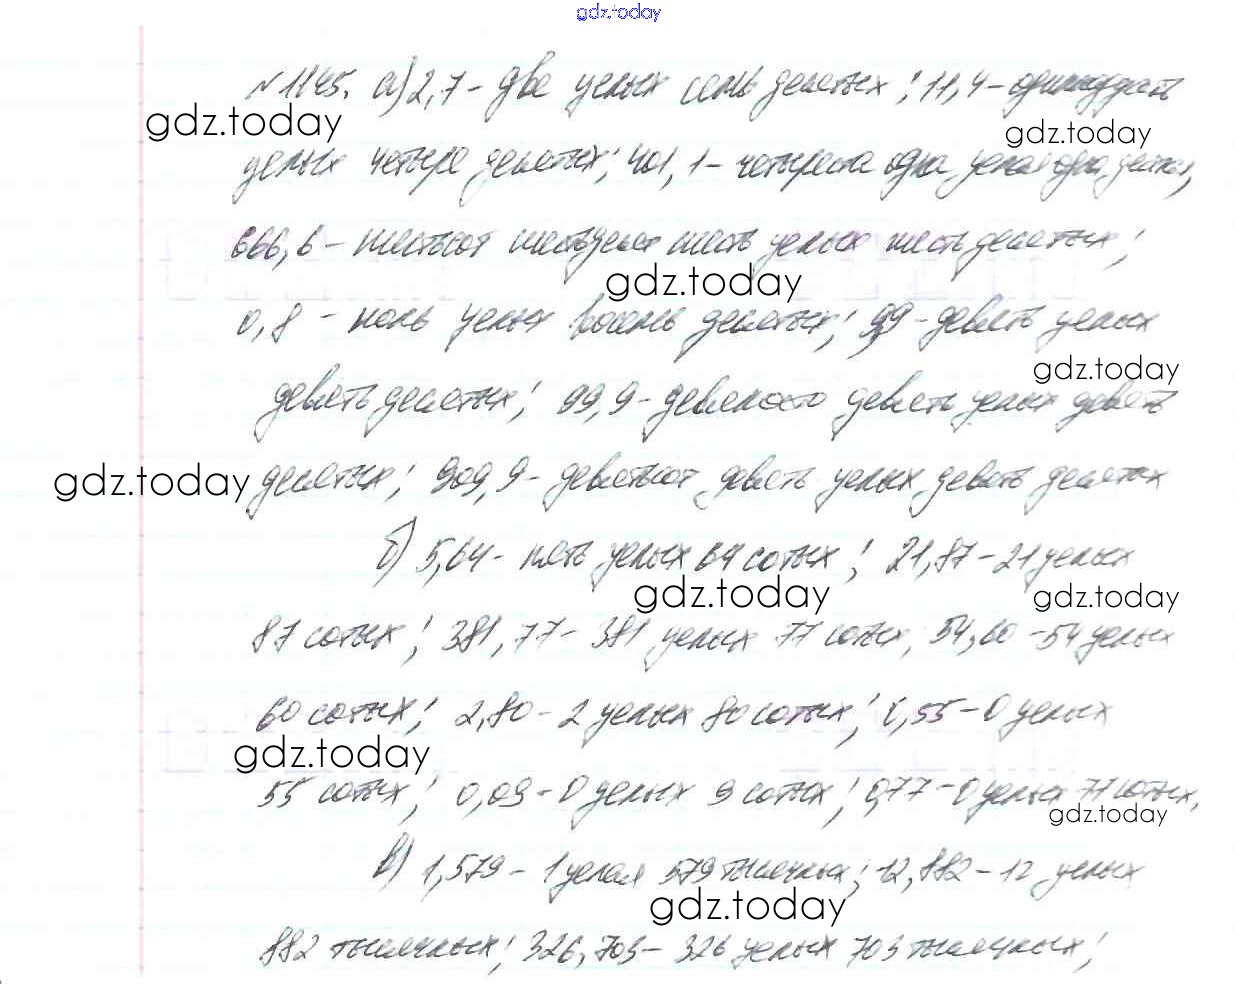 gdz.today
№1145. а) 2,7 - две целых семь десятых; 11,4 - одиннадцать
gdz.today gdz.today
целых четыре десятых; 401,1 - четыреста одна целая одна десятая,
666,6 - шестьсот шестьдесят шесть целых шесть десятых;
gdz.today
0,8 - ноль целых восемь десятых; 9,9 - девять целых
gdz.today
девять десятых; 99,9 - девяносто девять целых девять
gdz.today десятых; 909,9 - девятьсот девять целых девять десятых
б) 5,64 - пять целых 64 сотых; 21,87 - 21 целых
gdz.today gdz.today
87 сотых; 381,77 - 381 целых 77 сотых, 54,60 - 54 целых
60 сотых; 2,80 - 2 целых 80 сотых; 0,55 - 0 целых
gdz.today
55 сотых; 0,09 - 0 целых 9 сотых; 0,77 - 0 целых 77 сотых,
gdz.today
в) 1,579 - 1 целая 579 тысячных; 12,882 - 12 целых
gdz.today
882 тысячных; 326,703 - 326 целых 703 тысячных;